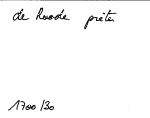 de Roode prêter
1700/30